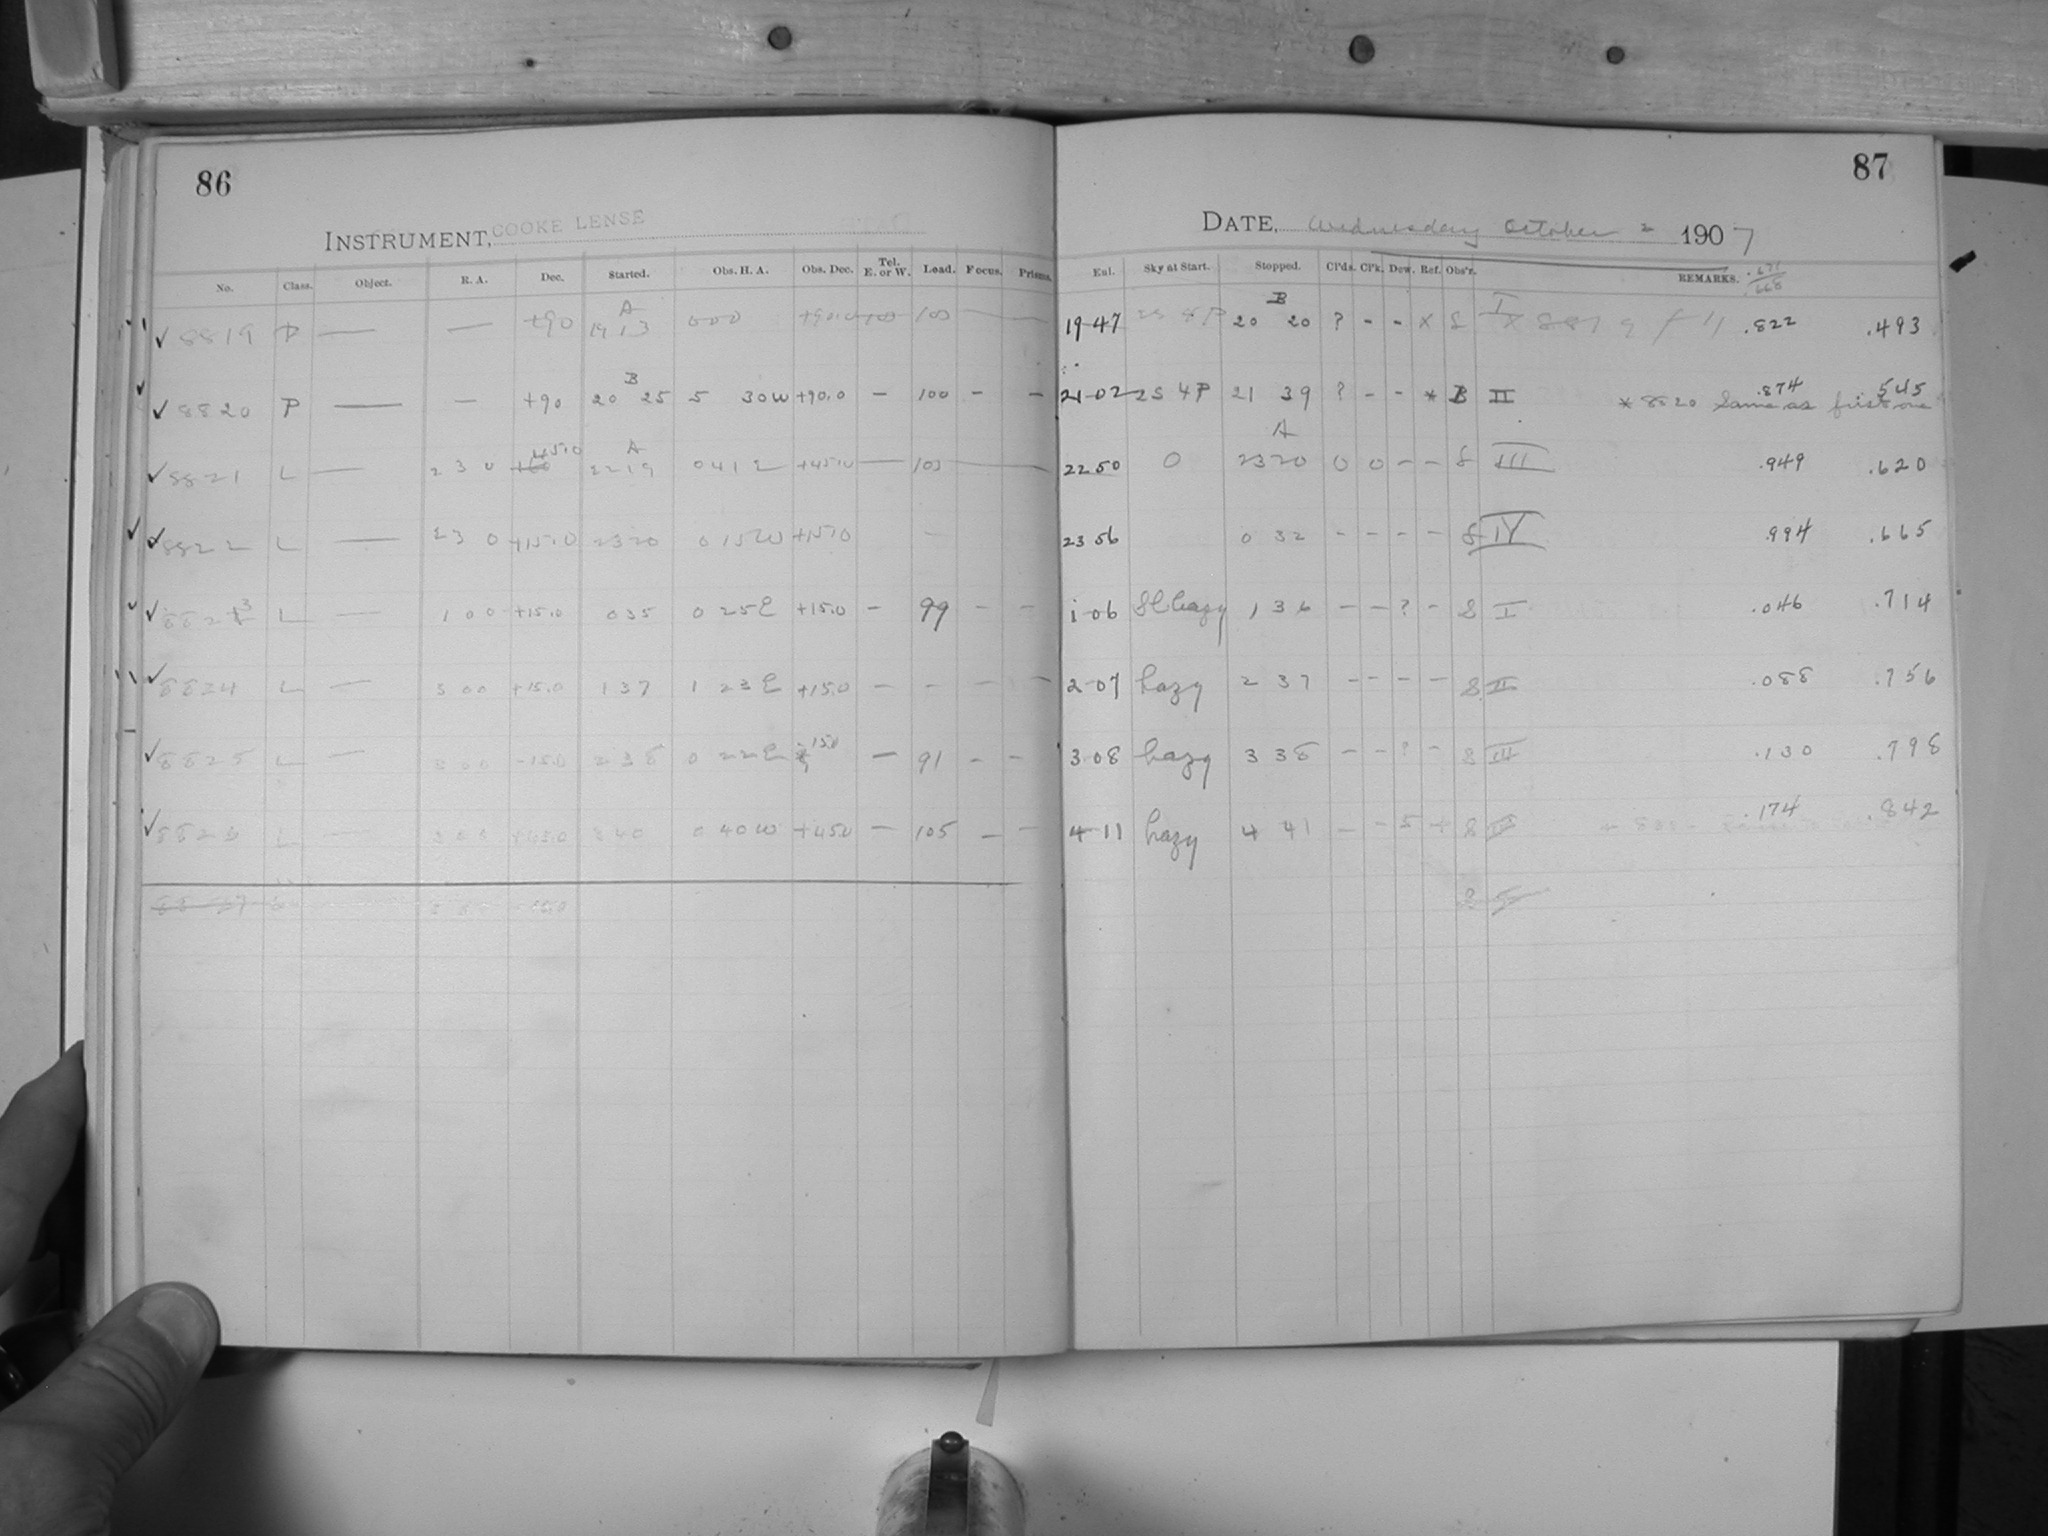 86
INSTRUMENT, COOKE LENSE
No. Class. Object. R. A. Dec. Started. Obs. H. A. Obs. Dec. Tel. E. or W. Load. Focus. Prisms.
A
✓ 8819 P — — +90 19 13 000 100
B
✓ 8820 P — — +90 20 25 5 30W +90.0 — 100 - -
+45.0 A
✓ 8821 L — 2 3 0 22 19 0 41 E +45.0 — 100
✓ 8822 L — 23 0 +15.0 2320 0 15W +15.0 -
✓ 882 3 L — 1 0 0 +15.0 0 35 0 25E +15.0 - 99 - -
✓ 8824 L — 3 00 +15.0 1 37 1 23E +15.0 - - - -
✓ 8825 L — 3 00 -15.0 2 38 0 22E -15.0 — 91 - -
✓ 8826 L — +45.0 3 40 0 40W +45.0 — 105 - -
87
DATE, Wednesday October 2 1907
Eul. Sky at Start. Stopped. Cl'ds. Cl'k. Dew. Ref. Obs'r. REMARKS. .671 .668
B
19-47 2S 4P 20 20 ? - - X S I X 8819 .822 .493
21-02 2S 4P 21 39 ? - - * B II .874 .545
* 8820 Same as first one
A
22 50 0 2320 0 0 - - S III .949 .620
23 56 0 32 - - - - S IV .994 .665
1-06 Sl hazy 1 36 - - ? - S I .046 .714
2-07 hazy 2 37 - - - - S II .088 .756
3-08 hazy 3 38 - - ? - S III .130 .798
4-11 hazy 4 41 - - S .174 .842